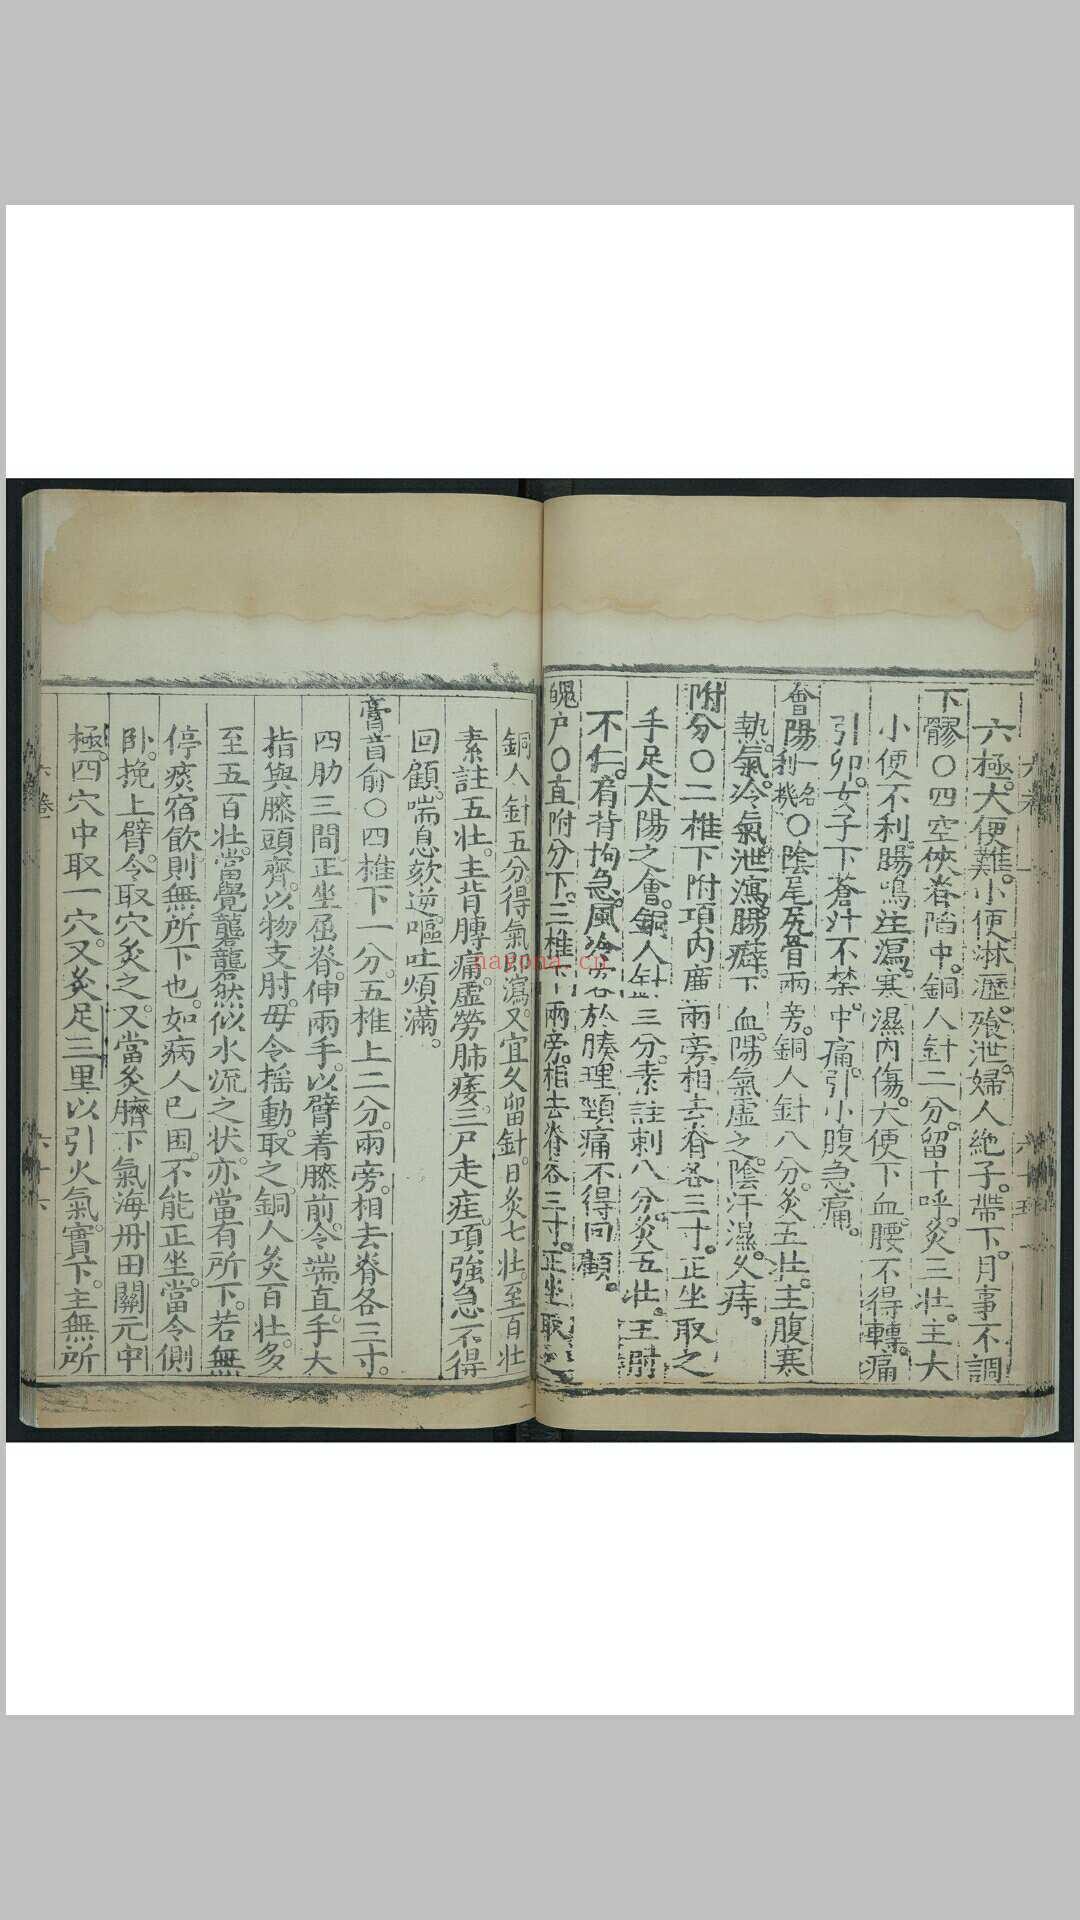 六極。大便難。小便淋瀝。飱泄。婦人絶子。帶下。月事不調
下髎○四空俠脊陷中。銅人針二分。留十呼。灸三壯。主大
小便不利。腸鳴注瀉。寒濕內傷。大便下血。腰不得轉。痛
引卵。女子下蒼汁不禁。中痛。引小腹急痛。
會陽一名利機○陰尾尻音兩旁。銅人針八分。灸五壯。主腹寒
熱氣。冷氣泄瀉。腸癖下血。陽氣虛乏。陰汗濕。久痔。
附分○二椎下附項內廉兩旁。相去脊各三寸。正坐取之
手足太陽之會。銅人針三分。素註刺八分。灸五壯。主肘
不仁。肩背拘急。風冷客於腠理。頸痛不得回顧。
魄戶○直附分下。三椎下兩旁。相去脊各三寸。正坐取之
銅人針五分。得氣即瀉。又宜久留針。日灸七壯。至百壯
素註五壯。主背膊痛。虛勞肺痿。三尸走疰。項強急不得
回顧。喘息欬逆。嘔吐煩滿。
膏肓俞○四椎下一分。五椎上二分。兩旁。相去脊各三寸。
四肋三間。正坐屈脊。伸兩手。以臂着膝前。令端直。手大
指與膝頭齊。以物支肘。毋令搖動。取之。銅人灸百壯。多
至五百壯。當覺礱礱然似水流之狀。亦當有所下。若無
停痰宿飲。則無所下也。如病人已困。不能正坐。當令側
臥。挽上臂。令取穴灸之。又當灸臍下氣海丹田關元中
極。四穴中取一穴。又灸足三里。以引火氣。實下。主無所
六卷
六十六
nayona.cn